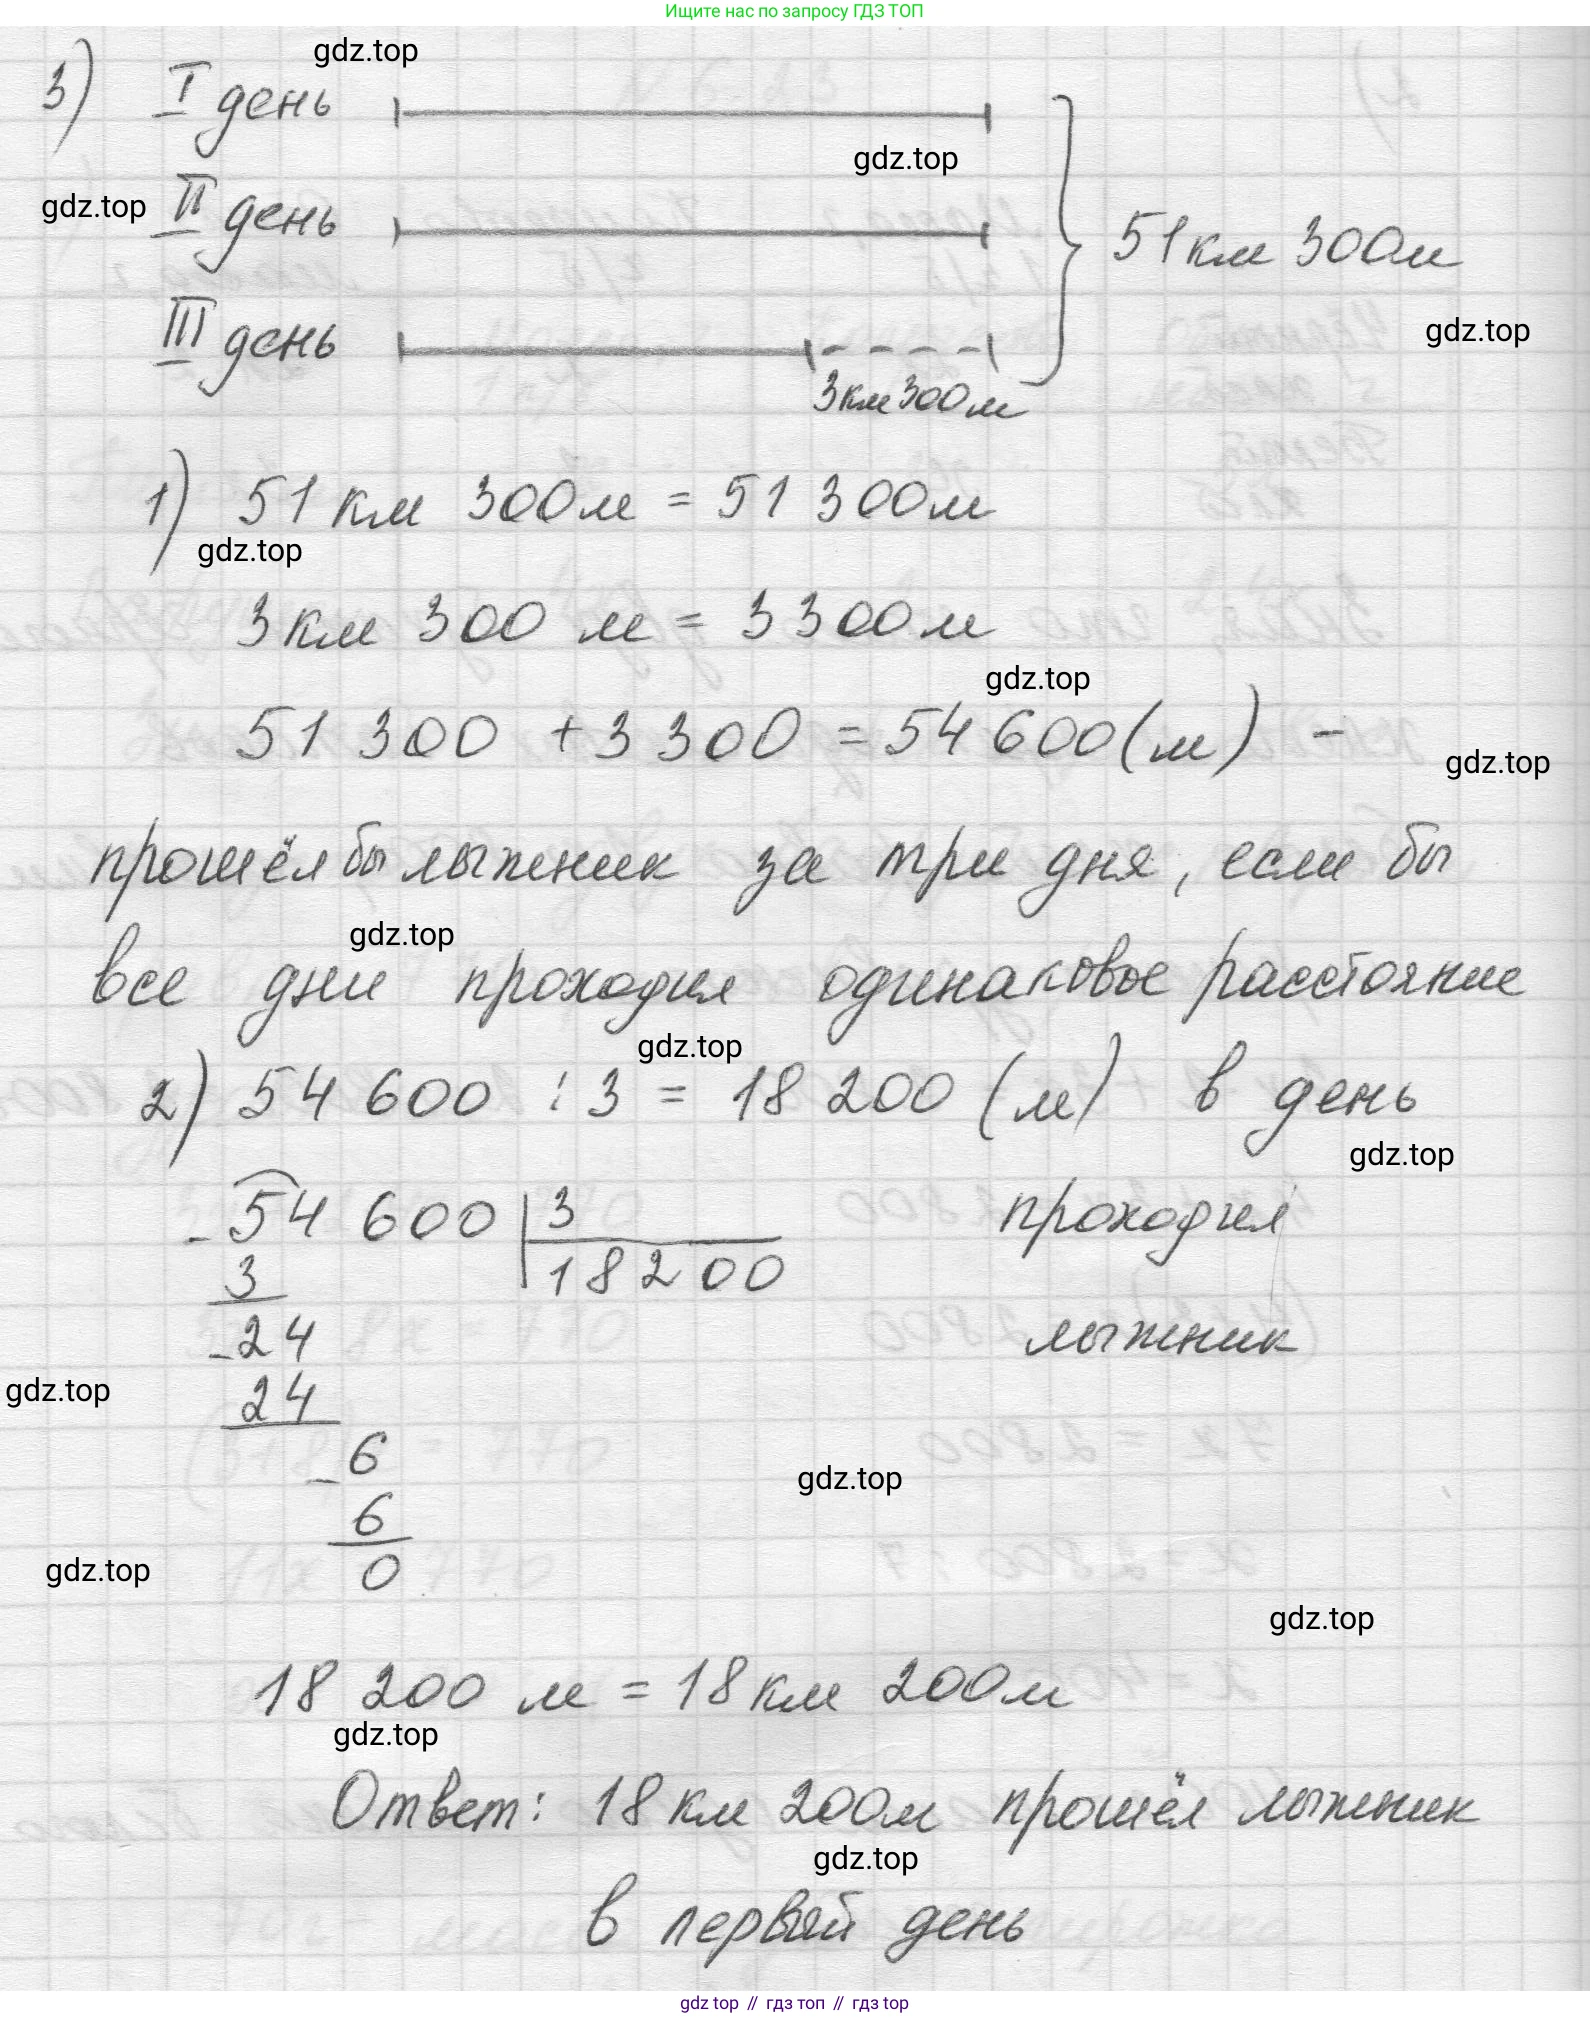 Ищите нас по запросу ГДЗ ТОП
gdz.top
3) I день
gdz.top
gdz.top II день
51 км 300 м
III день
gdz.top
3 км 300 м
1) 51 км 300 м = 51 300 м
gdz.top
3 км 300 м = 3 300 м
gdz.top
51 300 + 3 300 = 54 600 (м) -
gdz.top
прошёл бы лыжник за три дня, если бы
gdz.top
все дни проходил одинаковое расстояние
gdz.top
2) 54 600 : 3 = 18 200 (м) в день
gdz.top
- 54 600 | 3 проходил
3 18200
- 24 лыжник
gdz.top
24
- 6
gdz.top
6
gdz.top 0
gdz.top
18 200 м = 18 км 200 м
gdz.top
Ответ: 18 км 200 м прошёл лыжник
gdz.top
в первый день
gdz top // гдз топ // гдз top